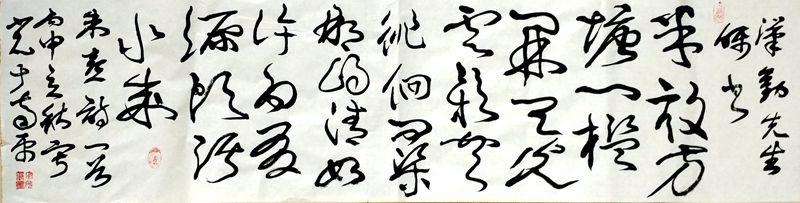 漢勤先生
半畝方
塘一鑑
開天光
雲影共
徘徊問渠
那得清如
許為有
源頭活
水來
朱熹詩一首
丙申立秋寫